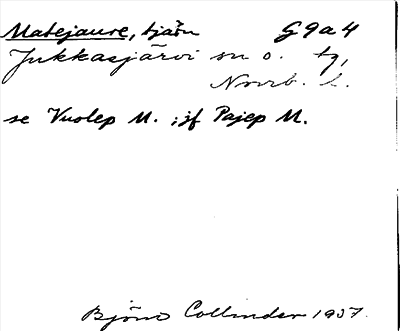 Matejaure, tjärn G9a4
Jukkasjärvi sn o. tg,
Norrb. l.
se Vuolep M. ; jf Pajep M.
Björn Collinder 1937.